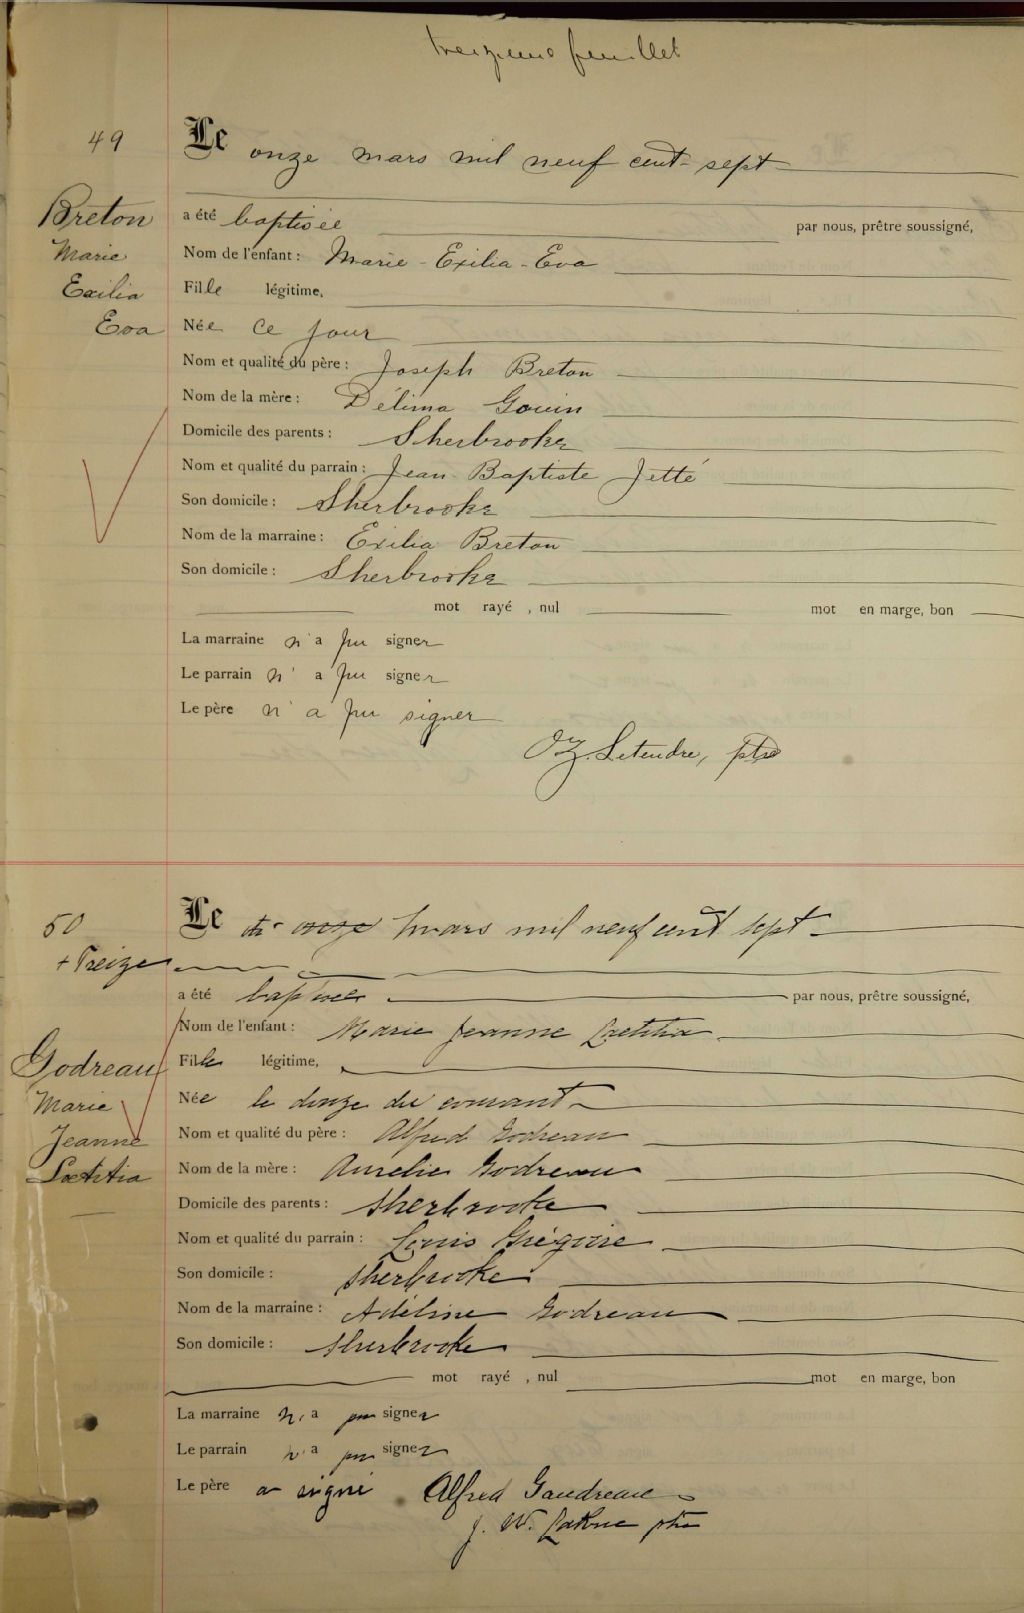 treizieme feuillet
49
Le onze mars mil neuf cent sept
Breton
Marie
Exilia
Eva
a été baptisée par nous, prêtre soussigné,
Nom de l'enfant : Marie - Exilia - Eva
Fille légitime,
Née ce jour
Nom et qualité du père : Joseph Breton
Nom de la mère : Délima Gouin
Domicile des parents : Sherbrooke
Nom et qualité du parrain : Jean-Baptiste Jetté
Son domicile : Sherbrooke
Nom de la marraine : Exilia Breton
Son domicile : Sherbrooke
mot rayé , nul mot en marge, bon
La marraine n'a pu signer
Le parrain n'a pu signer
Le père n'a pu signer
Oz. Letendre, ptre
50
+ Treize
Le onze mars mil neuf cent sept
Godreau
Marie
Jeanne
Lœtitia
a été baptisée par nous, prêtre soussigné,
Nom de l'enfant : Marie Jeanne Lætitia
Fille légitime,
Née le douze du courant
Nom et qualité du père : Alfred Godreau
Nom de la mère : Aurelie Godreau
Domicile des parents : Sherbrooke
Nom et qualité du parrain : Louis Grégoire
Son domicile : Sherbrooke
Nom de la marraine : Adéline Godreau
Son domicile : Sherbrooke
mot rayé , nul mot en marge, bon
La marraine n'a pu signer
Le parrain n'a pu signer
Le père a signé Alfred Gaudreau
J. W. LaRue ptre